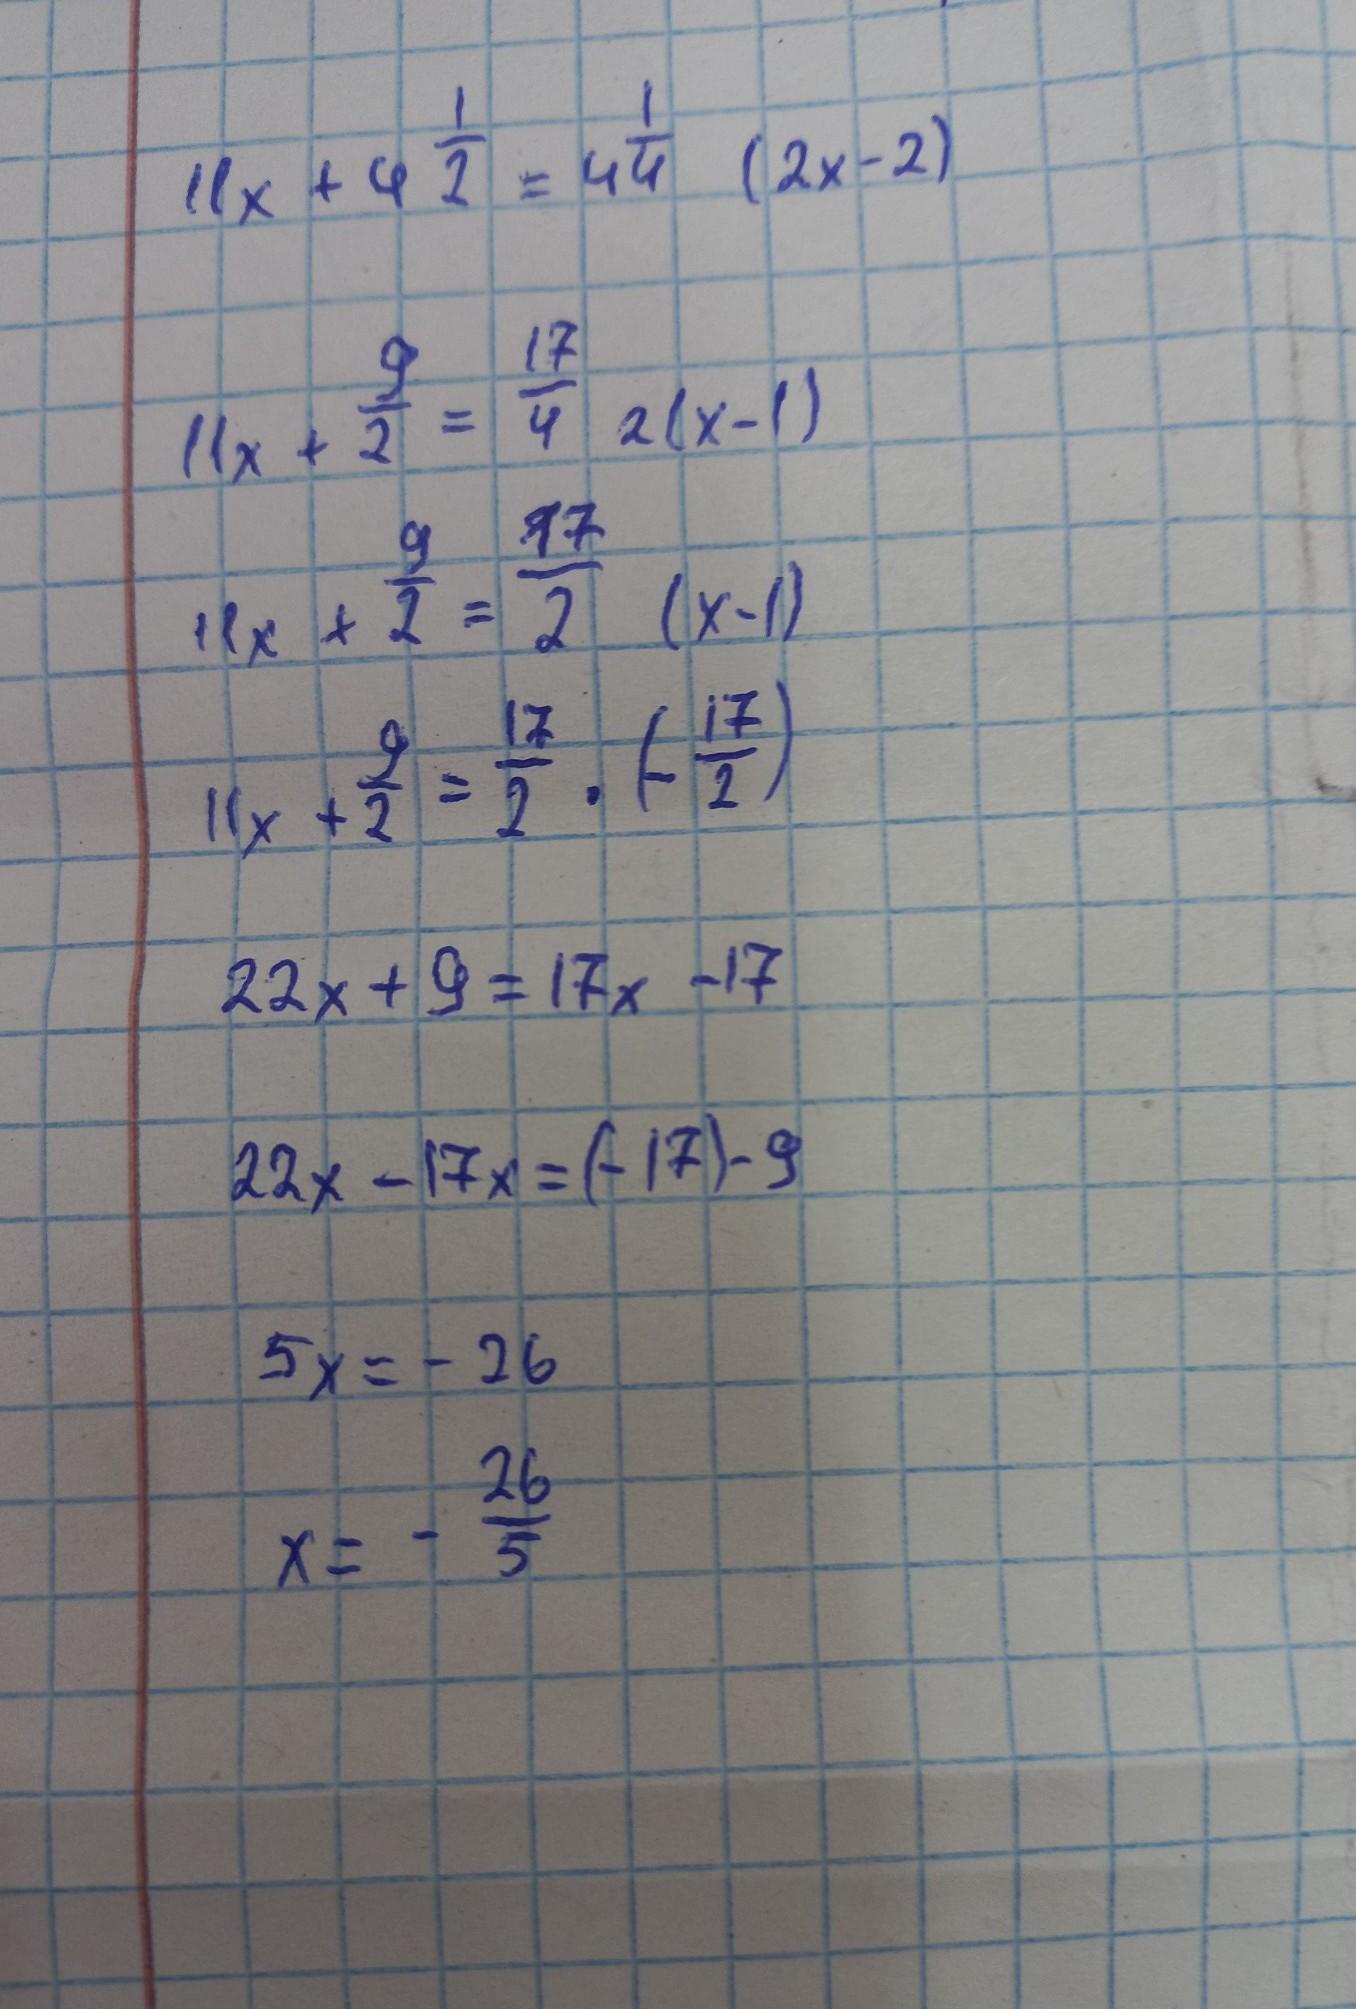 11x + 4 1/2 = 4 1/4 (2x - 2)
11x + 9/2 = 17/4 2(x - 1)
11x + 9/2 = 17/2 (x - 1)
11x + 9/2 = 17/2 · (- 17/2)
22x + 9 = 17x - 17
22x - 17x = (-17) - 9
5x = - 26
x = - 26/5